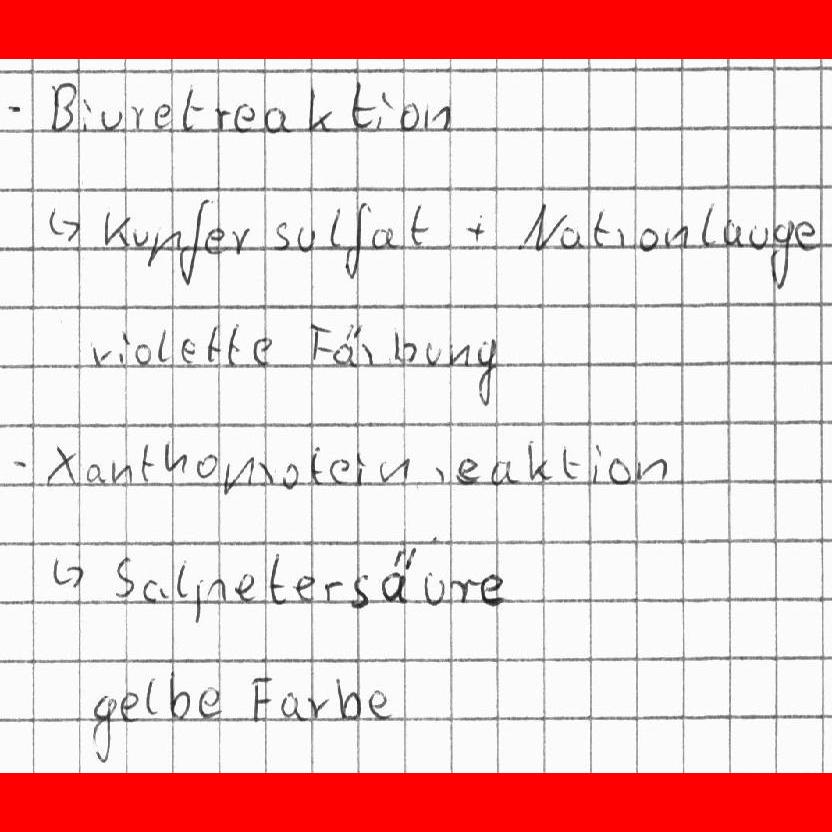 - Biuretreaktion
↳ Kupfersulfat + Natronlauge
violette Färbung
- Xanthoproteinreaktion
↳ Salpetersäure
gelbe Farbe